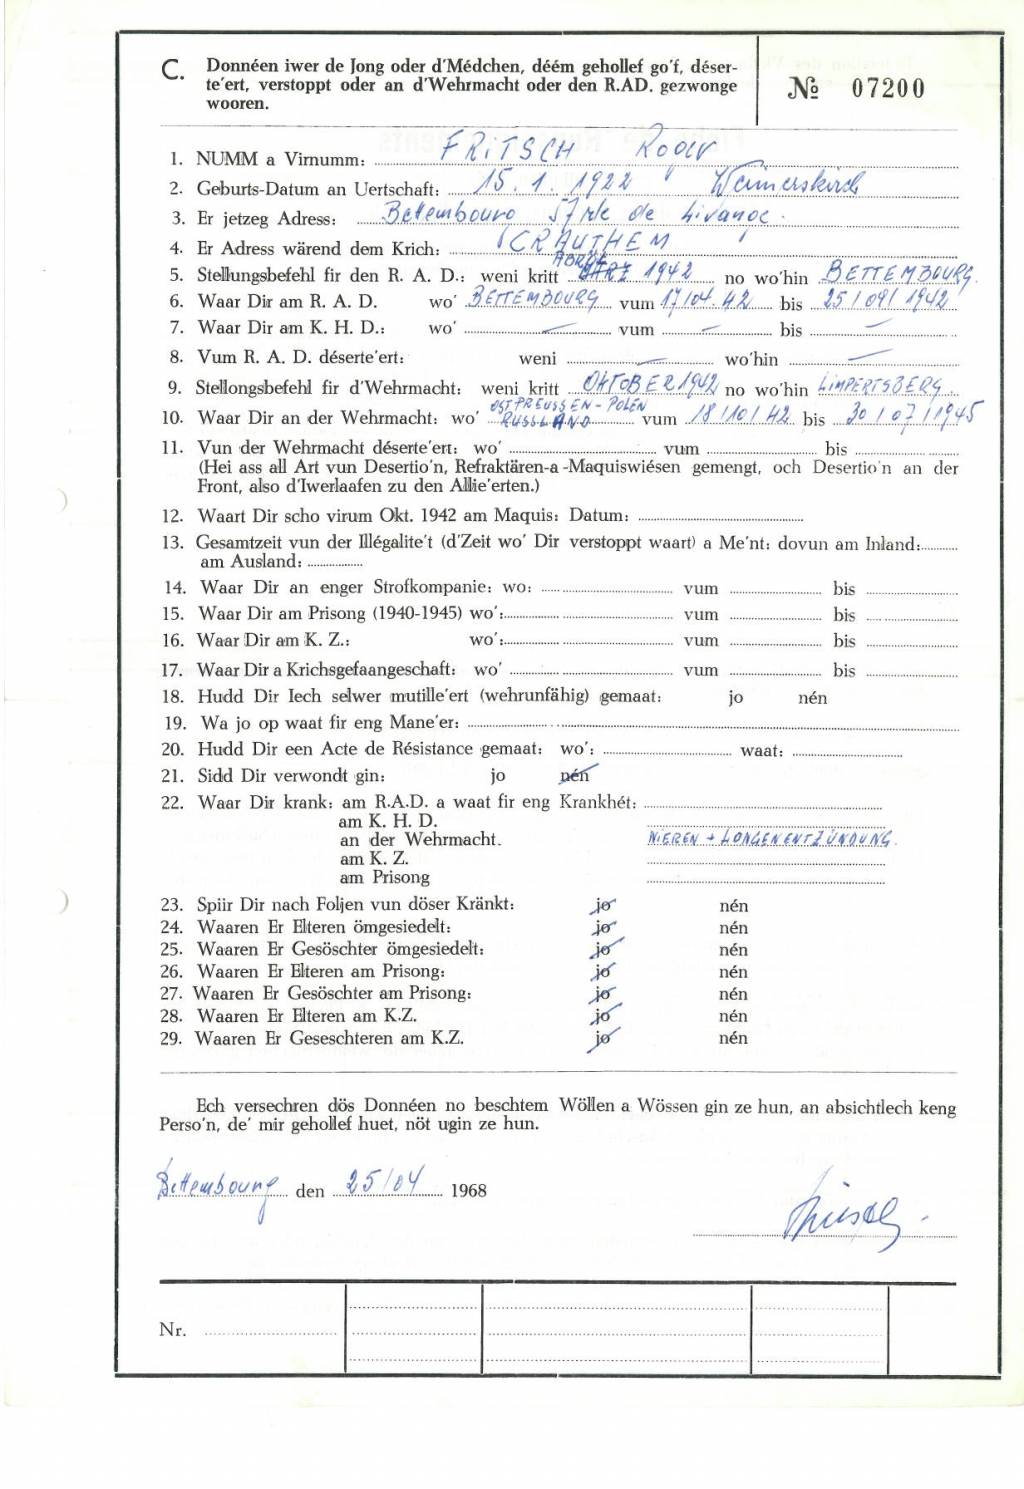 C. Donnéen iwer de Jong oder d'Médchen, déém gehollef go'f, déser-
te'ert, verstoppt oder an d'Wehrmacht oder den R.AD. gezwonge
wooren.
№ 07200
1. NUMM a Virnumm: FRITSCH Roger
2. Geburts-Datum an Uertschaft: 15.1.1922 Weimerskirch
3. Er jetzeg Adress: Bettembourg 57 rte de Livange.
4. Er Adress wärend dem Krich: CRAUTHEM
5. Stellungsbefehl fir den R. A. D.: weni kritt ABRIL MÄRZ 1942 no wo'hin BETTEMBOURG.
6. Waar Dir am R. A. D. wo' BETTEMBOURG vum 17/04.42 bis 25/09/1942
7. Waar Dir am K. H. D.: wo' — vum — bis —
8. Vum R. A. D. déserte'ert: weni — wo'hin —
9. Stellongsbefehl fir d'Wehrmacht: weni kritt OKTOBER 1942 no wo'hin LIMPERTSBERG.
10. Waar Dir an der Wehrmacht: wo' OSTPREUSSEN-POLEN RUSSLAND vum 18/10/42 bis 30/07/1945
11. Vun der Wehrmacht déserte'ert: wo' vum bis
(Hei ass all Art vun Desertio'n, Refraktären-a-Maquiswiésen gemengt, och Desertio'n an der
Front, also d'Iwerlaafen zu den Allie'erten.)
12. Waart Dir scho virum Okt. 1942 am Maquis: Datum:
13. Gesamtzeit vun der Illégalite't (d'Zeit wo' Dir verstoppt waart) a Me'nt: dovun am Inland:
am Ausland:
14. Waar Dir an enger Strofkompanie: wo: vum bis
15. Waar Dir am Prisong (1940-1945) wo': vum bis
16. Waar Dir am K. Z.: wo': vum bis
17. Waar Dir a Krichsgefaangeschaft: wo' vum bis
18. Hudd Dir Iech selwer mutille'ert (wehrunfähig) gemaat: jo nén
19. Wa jo op waat fir eng Mane'er:
20. Hudd Dir een Acte de Résistance gemaat: wo': waat:
21. Sidd Dir verwondt gin: jo nén
22. Waar Dir krank: am R.A.D. a waat fir eng Krankhét:
am K. H. D.
an der Wehrmacht. NIEREN + LONGENENTZÜNDUNG.
am K. Z.
am Prisong
23. Spiir Dir nach Foljen vun döser Kränkt: jo nén
24. Waaren Er Elteren ömgesiedelt: jo nén
25. Waaren Er Gesöschter ömgesiedelt: jo nén
26. Waaren Er Elteren am Prisong: jo nén
27. Waaren Er Gesöschter am Prisong: jo nén
28. Waaren Er Elteren am K.Z. jo nén
29. Waaren Er Geseschteren am K.Z. jo nén
Ech versechren dös Donnéen no beschtem Wöllen a Wössen gin ze hun, an absichtlech keng
Perso'n, de' mir gehollef huet, nöt ugin ze hun.
Bettembourg den 25/04 1968
Nr.